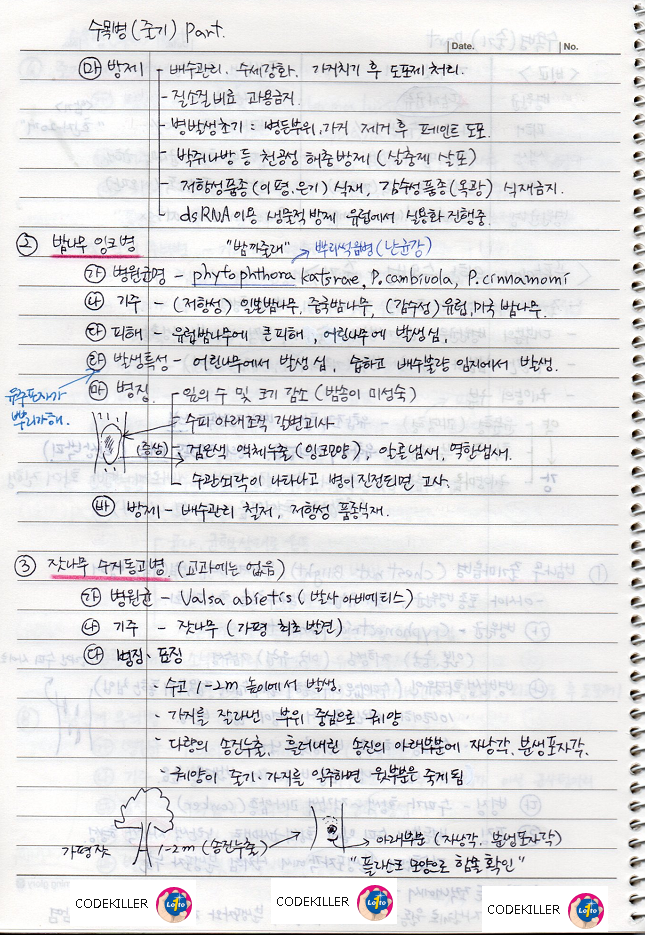 수목병(줄기) Part.
Date. No.
㉲ 방제 - 배수관리. 수세강화. 가지치기 후 도포제 처리.
- 질소질비료 과용금지.
- 병발생초기 : 병든부위, 가지 제거 후 페인트 도포.
- 박쥐나방 등 천공성 해충방제 (살충제 살포)
- 저항성품종(이평.은기) 식재, 감수성품종(옥광) 식재금지.
- dsRNA 이용 생물적방제 유럽에서 실용화 진행중.
② 밤나무 잉크병 "밤파줄래" 뿌리썩음병(난균강)
㉮ 병원균명 - phytophthora katsrae, P.cambivola, P.cinnamomi
㉯ 기주 - (저항성) 일본밤나무, 중국밤나무, (감수성) 유럽, 미국 밤나무.
㉰ 피해 - 유럽밤나무에 큰피해, 어린나무에 발생심,
㉱ 발생특성 - 어린나무에서 발생심, 습하고 배수불량 임지에서 발생.
유주포자가 뿌리가해.
㉲ 병징 - 잎의 수 및 크기 감소 (밤송이 미성숙)
수피 아래조직 갈변괴사
(증상) - 검은색 액체누출 (잉크모양) - 알콜냄새, 역한냄새.
수관쇠락이 나타나고 병이진전되면 고사.
㉳ 방제 - 배수관리 철저, 저항성 품종식재.
③ 잣나무 수지동고병. (교과에는 없음)
㉮ 병원균 - Valsa abietis (발사 아비에티스)
㉯ 기주 - 잣나무 (가평 최초 발견)
㉰ 병징·표징
- 수고 1-2m 높이에서 발생.
- 가지를 잘라낸 부위 중심으로 궤양
- 다량의 송진누출, 흘러내린 송진의 아래부분에 자낭각. 분생포자각.
- 궤양이 줄기·가지를 일주하면 윗부분은 죽게됨
가평잣 1-2m (송진누출) 아래부분 (자낭각. 분생포자각)
"플라스크 모양으로 함몰 확인"
CODEKILLER Lotto CODEKILLER Lotto CODEKILLER Lotto